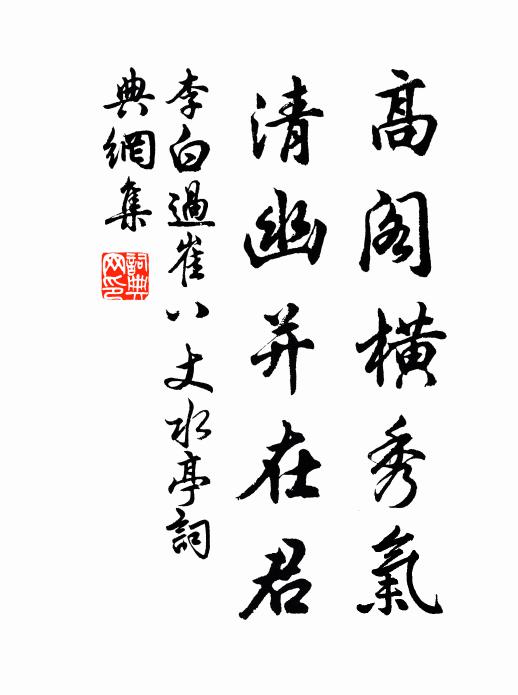 高閣橫秀氣
清幽并在君
李白過崔八丈水亭詞
典網集
詞典網印